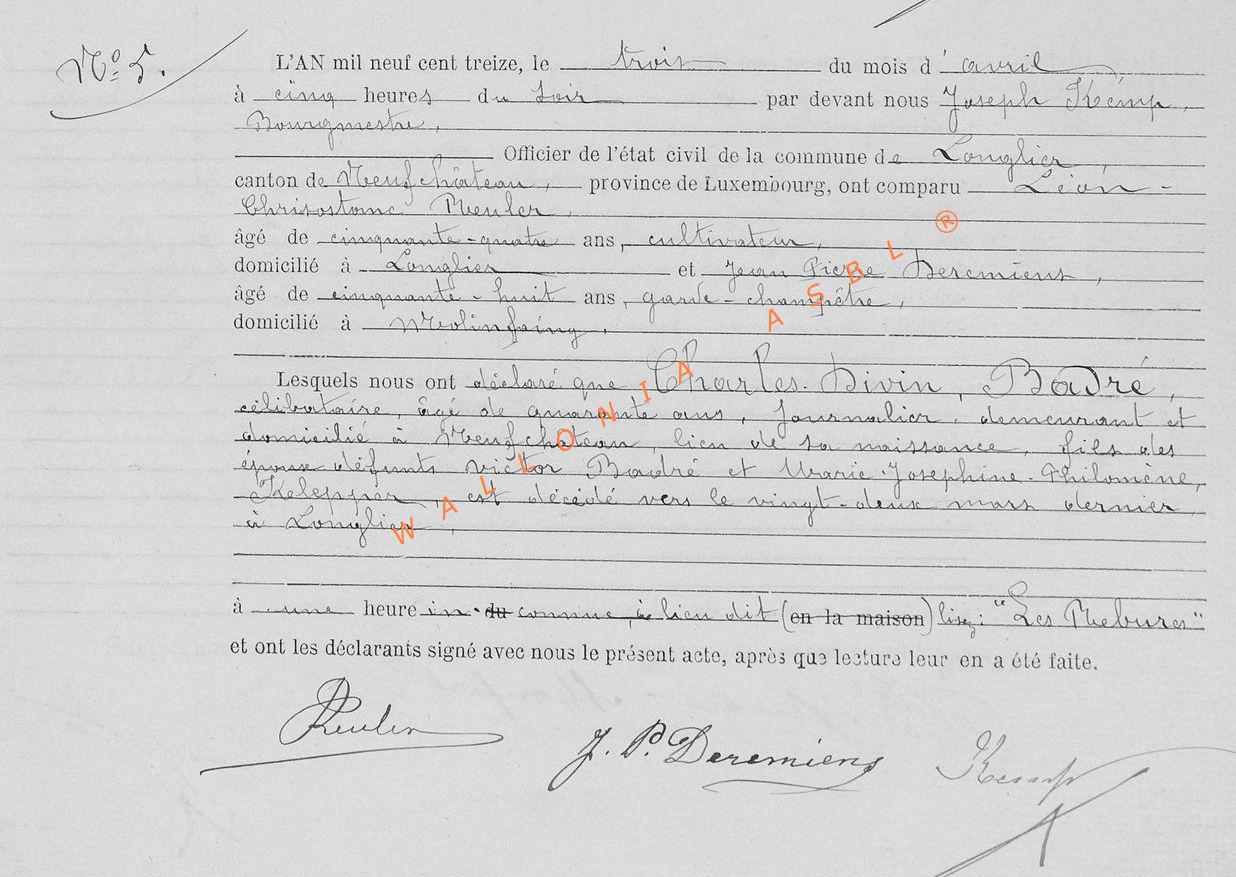 Nº 5.
L'AN mil neuf cent treize, le trois du mois d'avril
à cinq heures du soir par devant nous Joseph Kemp,
Bourgmestre,
Officier de l'état civil de la commune de Longlier,
canton de Neufchâteau, province de Luxembourg, ont comparu Léon-
Chrisostome Reuler,
âgé de cinquante-quatre ans, cultivateur,
domicilié à Longlier et Jean Pierre Deremiens,
âgé de cinquante-huit ans, garde-champêtre,
domicilié à Molinfaing,
Lesquels nous ont déclaré que Charles-Divin, Badré,
célibataire, âgé de quarante ans, journalier, demeurant et
domicilié à Neufchâteau, lieu de sa naissance, fils des
époux défunts Victor Badré et Marie-Josephine-Philomène,
Kelepper, est décédé vers le vingt-deux mars dernier
à Longlier,
à une heure in du connue, à lieu dit (en la maison) lisez: "Les Rebures"
et ont les déclarants signé avec nous le présent acte, après que lecture leur en a été faite.
Reuler
J. P. Deremiens
Kemp
WALLONIA ASBL ®